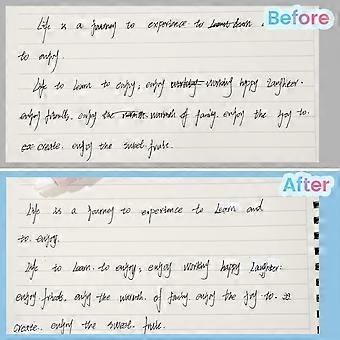 Before
Life is a journey to experience to learn
to enjoy.
Life to learn to enjoy, enjoy working happy laughter.
enjoy friends. enjoy the warmth of fairy enjoy the joy to.
co create. enjoy the sweet fruit.
After
Life is a journey to experience to Learn and
to enjoy.
Life to learn to enjoy, enjoy working happy laughter.
enjoy friends. enjoy the warmth of fairy enjoy the joy to co
create. enjoy the sweet fruit.